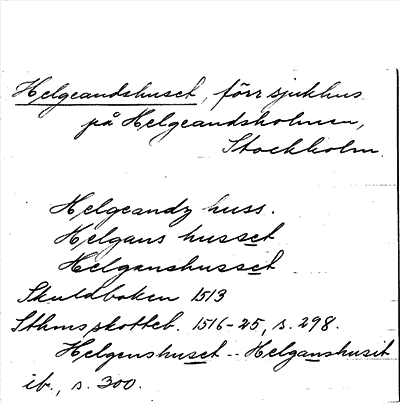 Helgeandshuset, förr sjukhus
på Helgeandsholmen,
Stockholm.
Helgeandz huss.
Helgans husset
Helganshusset
Skuldboken 1513
Sthms skotteb. 1516-25, s. 298.
Helgenshuset -- Helganshusit
ib., s. 300.